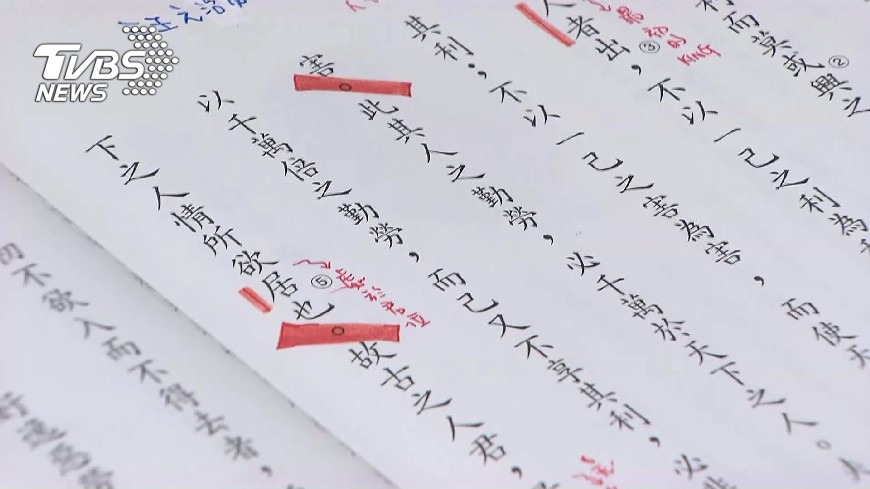 TVBS
NEWS
利而莫或興②之
人者出，③不以一己之利為
最初的KING
其利；不以一己之害為害，而使天
害。此其人之勤勞，必千萬於天下之人。
以千萬倍之勤勞，而己又不享其利，必非
下之人情所欲居⑤也。故古之人君，
不欲入而不得去者，
好逸惡勞